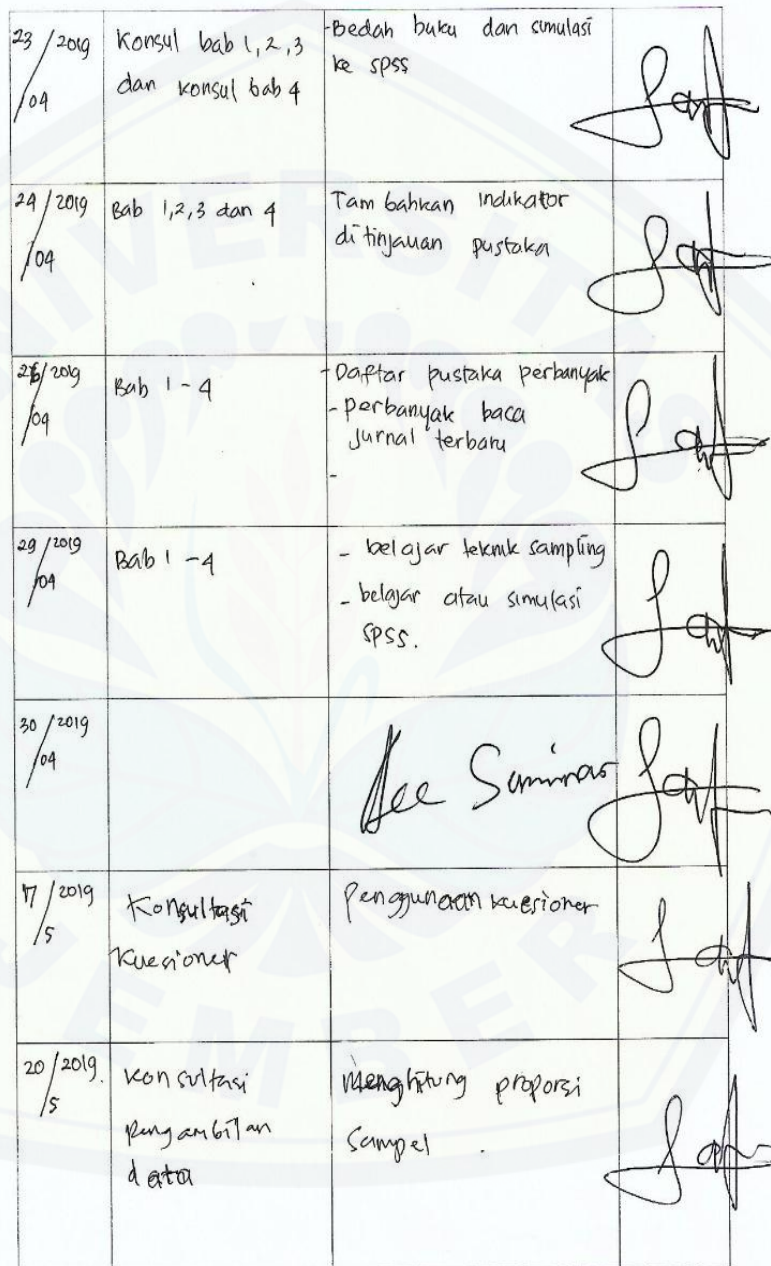 23/04 2019
Konsul bab 1,2,3
dan konsul bab 4
-Bedah buku dan simulasi
ke spss
24/04 2019
Bab 1,2,3 dan 4
Tambahkan indikator
di tinjauan pustaka
26/04 2019
Bab 1-4
-Daftar pustaka perbanyak
-perbanyak baca
jurnal terbaru
-
29/04 2019
Bab 1-4
- belajar teknik sampling
- belajar atau simulasi
SPSS.
30/04 2019
Acc Seminar
17/5 2019
Konsultasi
kuesioner
Penggunaan kuesioner
20/5 2019.
konsultasi
pengambilan
data
Menghitung proporsi
Sampel.
UNIVERSITAS
JEMBER